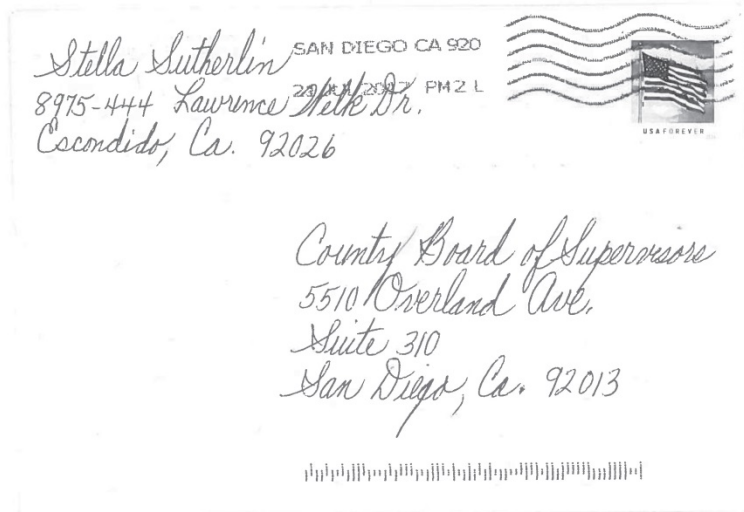 Stella Sutherlin
8975-444 Lawrence Welk Dr.
Escondido, Ca. 92026
SAN DIEGO CA 920
2017 PM 2 L
USA FOREVER
County Board of Supervisors
5510 Overland Ave.
Suite 310
San Diego, Ca. 92013